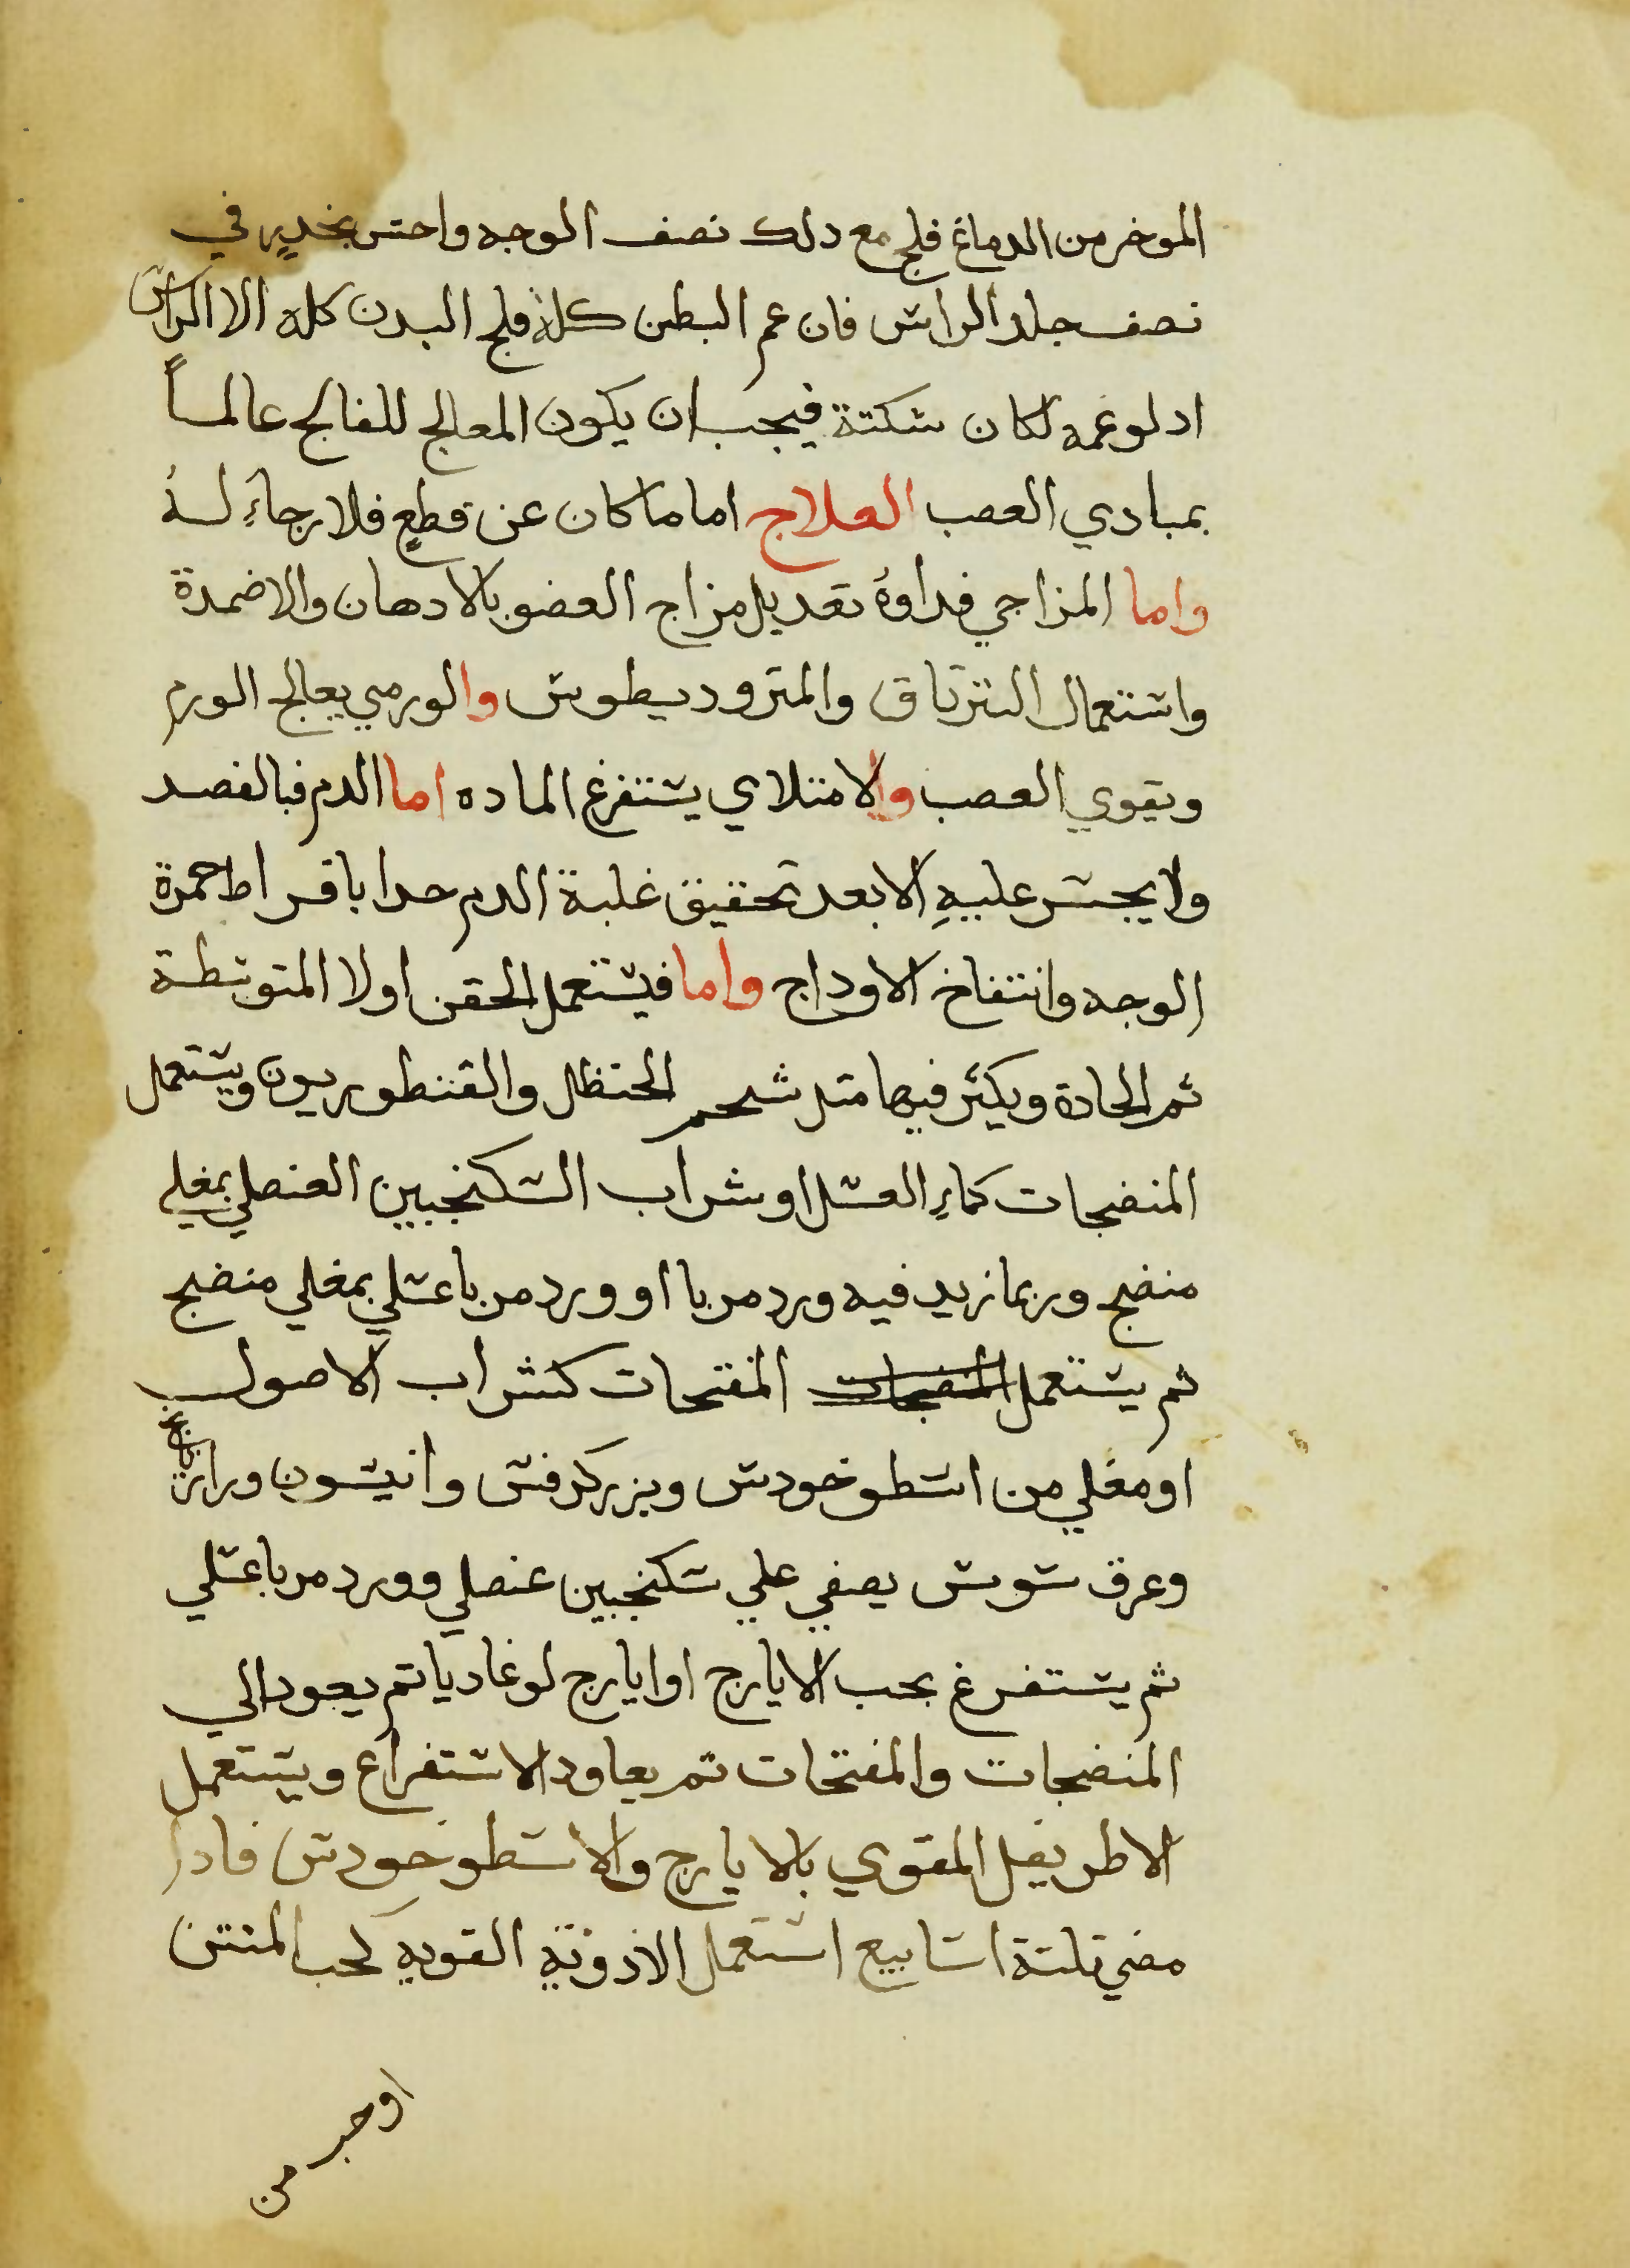 الموخر من الدماغ فلج مع دلك نصف الوجه واحس بخدرٍ في
نصف جلد الراس فان عم البطن كلهُ فلج البدن كله الا الراس
اد لو عمه لكان سكتة فيجب ان يكون المعالج للفالج عالماً
بمبادي العصب العلاج اما ما كان عن قطعٍ فلا رجاءِ لهُ
واما المزاجي فداوهُ تعديل مزاج العضو بالادهان والاضمدة
واستعمال الترياق والمتروديطوس والورمي يعالج الورم
ويقوي العصب والامتلاي يستفرغ الماده اما الدم فبالفصد
ولا يجسر عليهِ الا بعد تحقيق غلبة الدم حدا بافراط حمرة
الوجه وانتفاخ الاوداج واما فيستعمل الحقن اولا المتوسطة
ثم الحادة ويكثر فيها متل شحم الحنظل والقنطوريون ويستعمل
المنضجات كماءِ العسل او شراب السكنجبين العنصلي بمغلي
منضج وربما زيد فيه ورد مربا او ورد مربا عسلي بمغلي منضج
ثم يستعمل المنضجات المفتحات كشراب الاصول
او مغلي من اسطوخودس وبزر كرفس وانيسون ورازيانج
وعرق سوس يصفي علي سكنجبين عنصلي وورد مربا عسلي
ثم يستفرغ بحب الايارج او ايارج لوغاديا تم يعود الي
المنضجات والمفتحات تم يعاود الاستفراغ ويستعمل
الاطريفل المقوي بالايارج والاسطوخودس فادا
مضي تلتة اسابيع استعمل الادوية القويه كحب المنتن
او حب
من